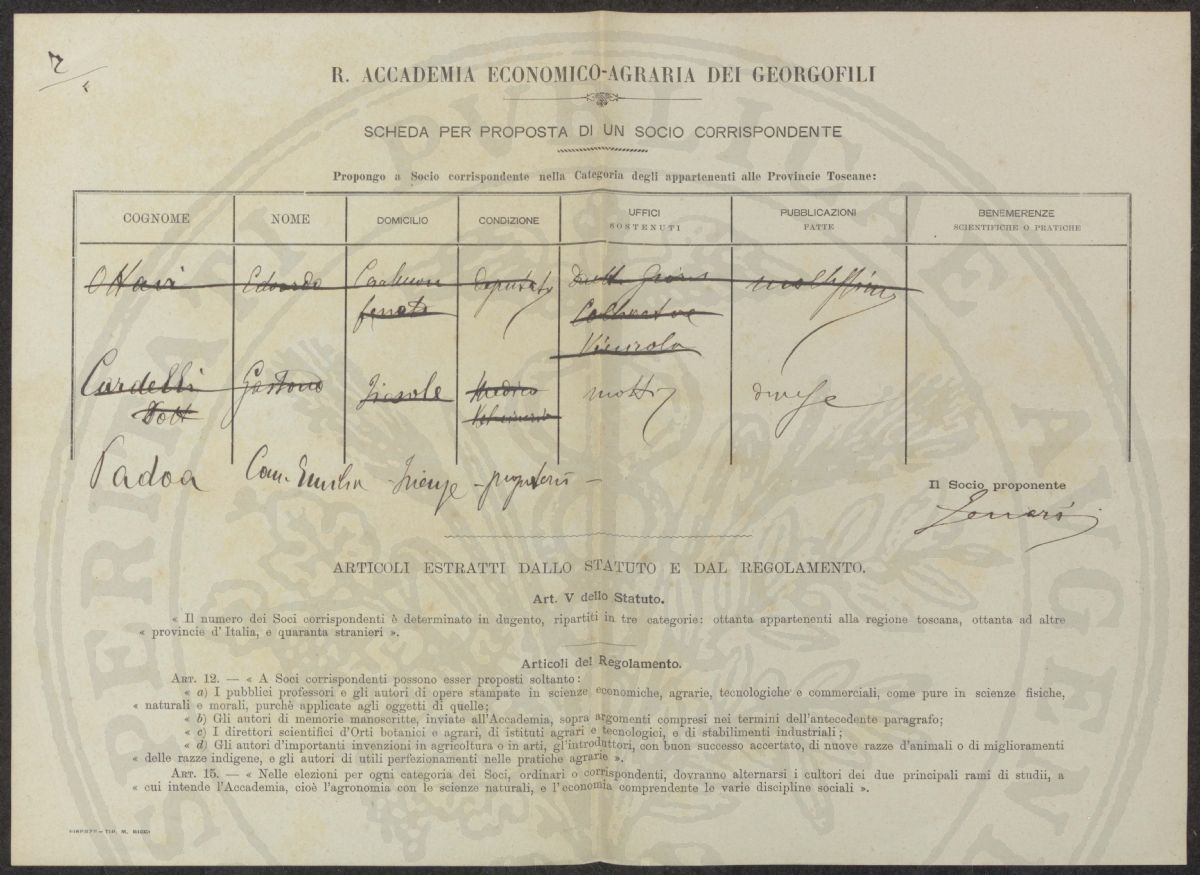 R. ACCADEMIA ECONOMICO-AGRARIA DEI GEORGOFILI
SCHEDA PER PROPOSTA DI UN SOCIO CORRISPONDENTE
Propongo a Socio corrispondente nella Categoria degli appartenenti alle Provincie Toscane:
COGNOME NOME DOMICILIO CONDIZIONE UFFICI SOSTENUTI PUBBLICAZIONI FATTE BENEMERENZE SCIENTIFICHE O PRATICHE
Ottavi Edoardo Deputato
Vinicola
Cardelli Gastone Fiesole Medico molti diverse
Dott
Padoa Com. Emilio Firenze
Il Socio proponente
ARTICOLI ESTRATTI DALLO STATUTO E DAL REGOLAMENTO.
Art. V dello Statuto.
« Il numero dei Soci corrispondenti è determinato in dugento, ripartiti in tre categorie: ottanta appartenenti alla regione toscana, ottanta ad altre
« provincie d' Italia, e quaranta stranieri ».
Articoli del Regolamento.
ART. 12. — « A Soci corrispondenti possono esser proposti soltanto:
« a) I pubblici professori e gli autori di opere stampate in scienze economiche, agrarie, tecnologiche e commerciali, come pure in scienze fisiche,
« naturali e morali, purchè applicate agli oggetti di quelle;
« b) Gli autori di memorie manoscritte, inviate all'Accademia, sopra argomenti compresi nei termini dell'antecedente paragrafo;
« c) I direttori scientifici d'Orti botanici e agrari, di istituti agrari e tecnologici, e di stabilimenti industriali;
« d) Gli autori d'importanti invenzioni in agricoltura o in arti, gl'introduttori, con buon successo accertato, di nuove razze d'animali o di miglioramenti
« delle razze indigene, e gli autori di utili perfezionamenti nelle pratiche agrarie ».
ART. 15. — « Nelle elezioni per ogni categoria dei Soci, ordinari o corrispondenti, dovranno alternarsi i cultori dei due principali rami di studii, a
« cui intende l'Accademia, cioè l'agronomia con le scienze naturali, e l'economia comprendente le varie discipline sociali ».
FIRENZE — TIP. M. RICCI